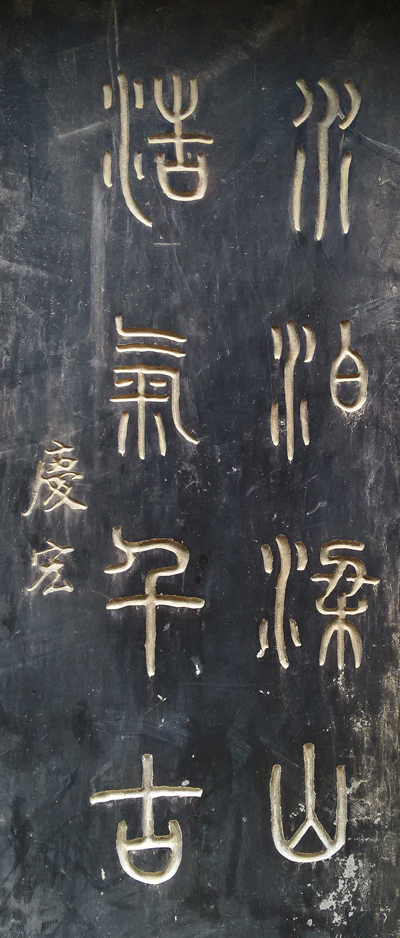 水泊梁山
浩氣千古
慶宏